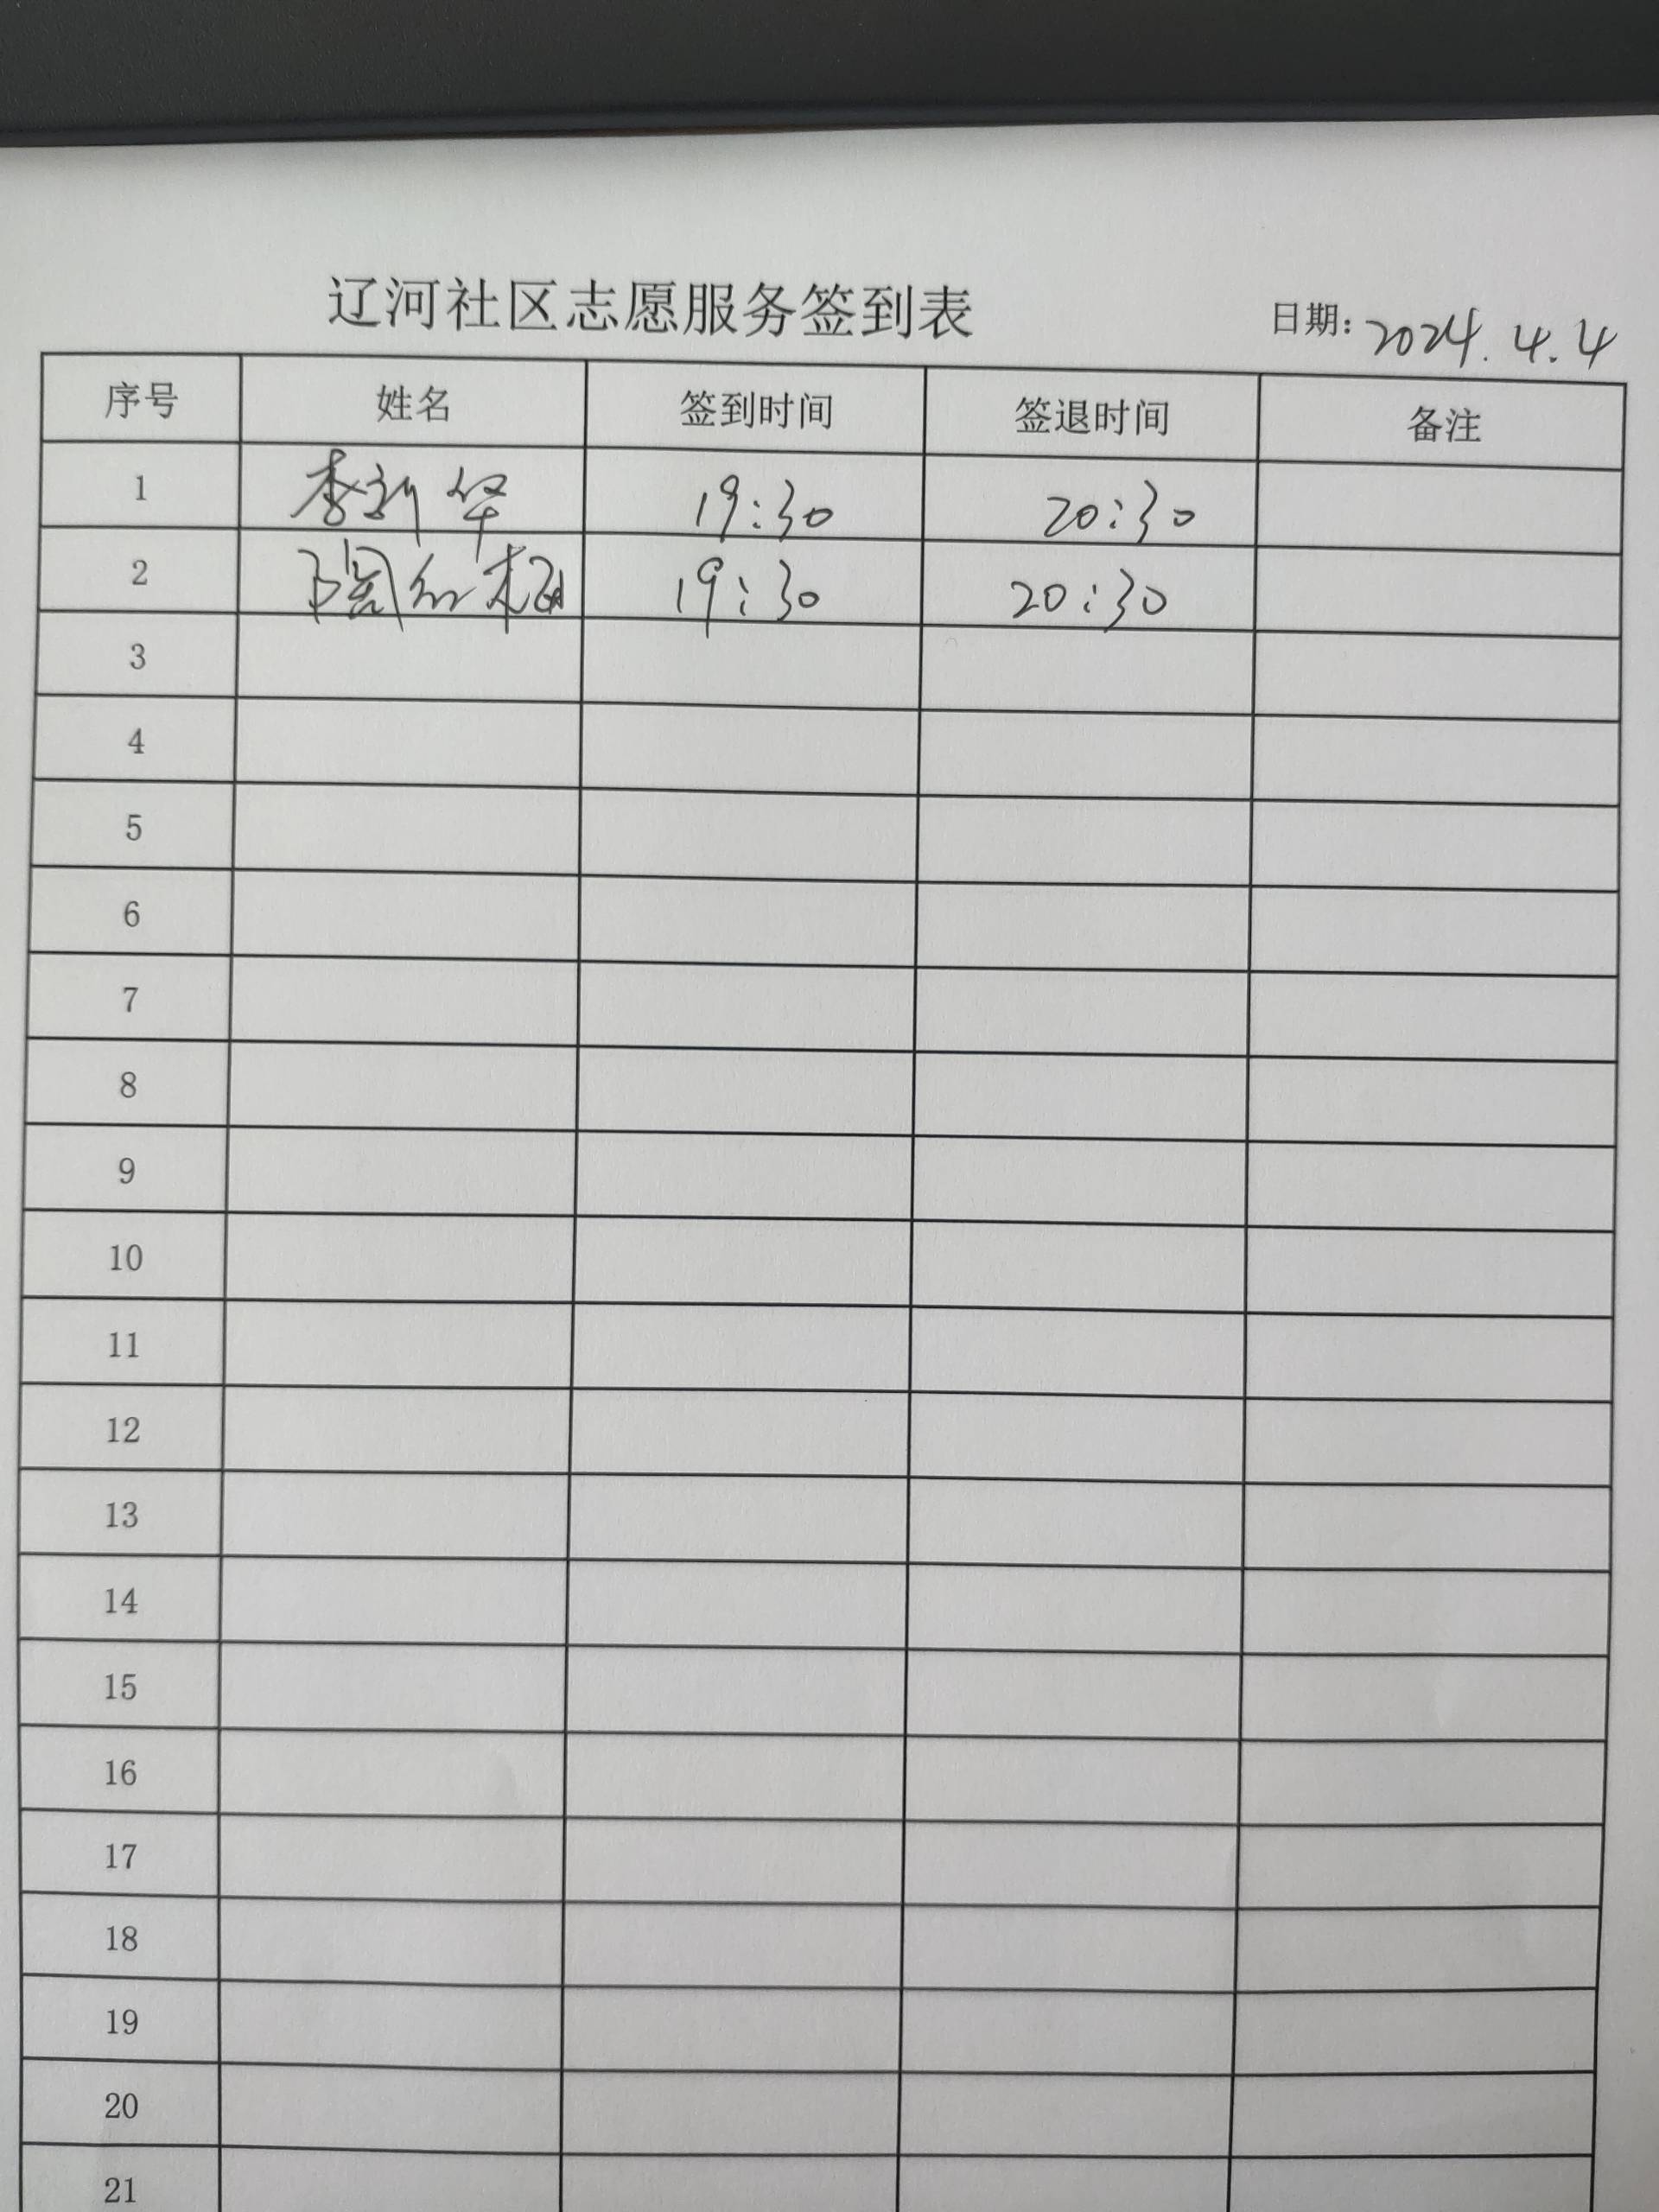 辽河社区志愿服务签到表 日期: 2024.4.4
序号 姓名 签到时间 签退时间 备注
1 李新华 19:30 20:30
2 19:30 20:30
3
4
5
6
7
8
9
10
11
12
13
14
15
16
17
18
19
20
21